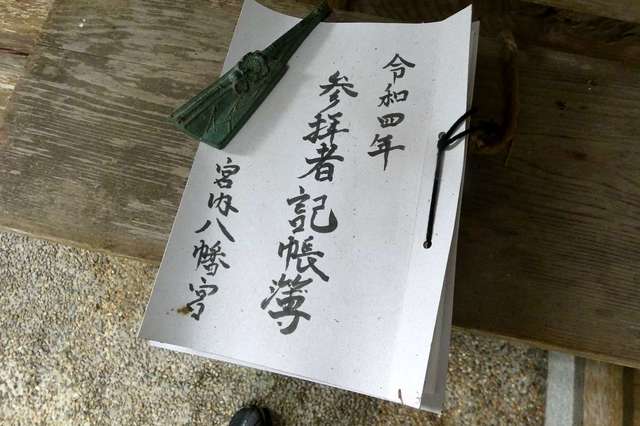 令和四年
参拝者記帳簿
宮内八幡宮